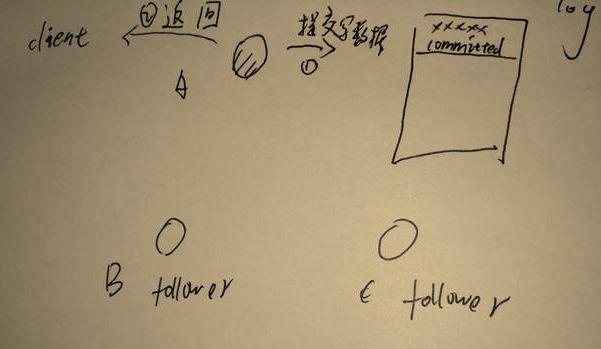 client
② 返回
提交写数据
①
xxxxx
committed
log
A
B follower
C follower